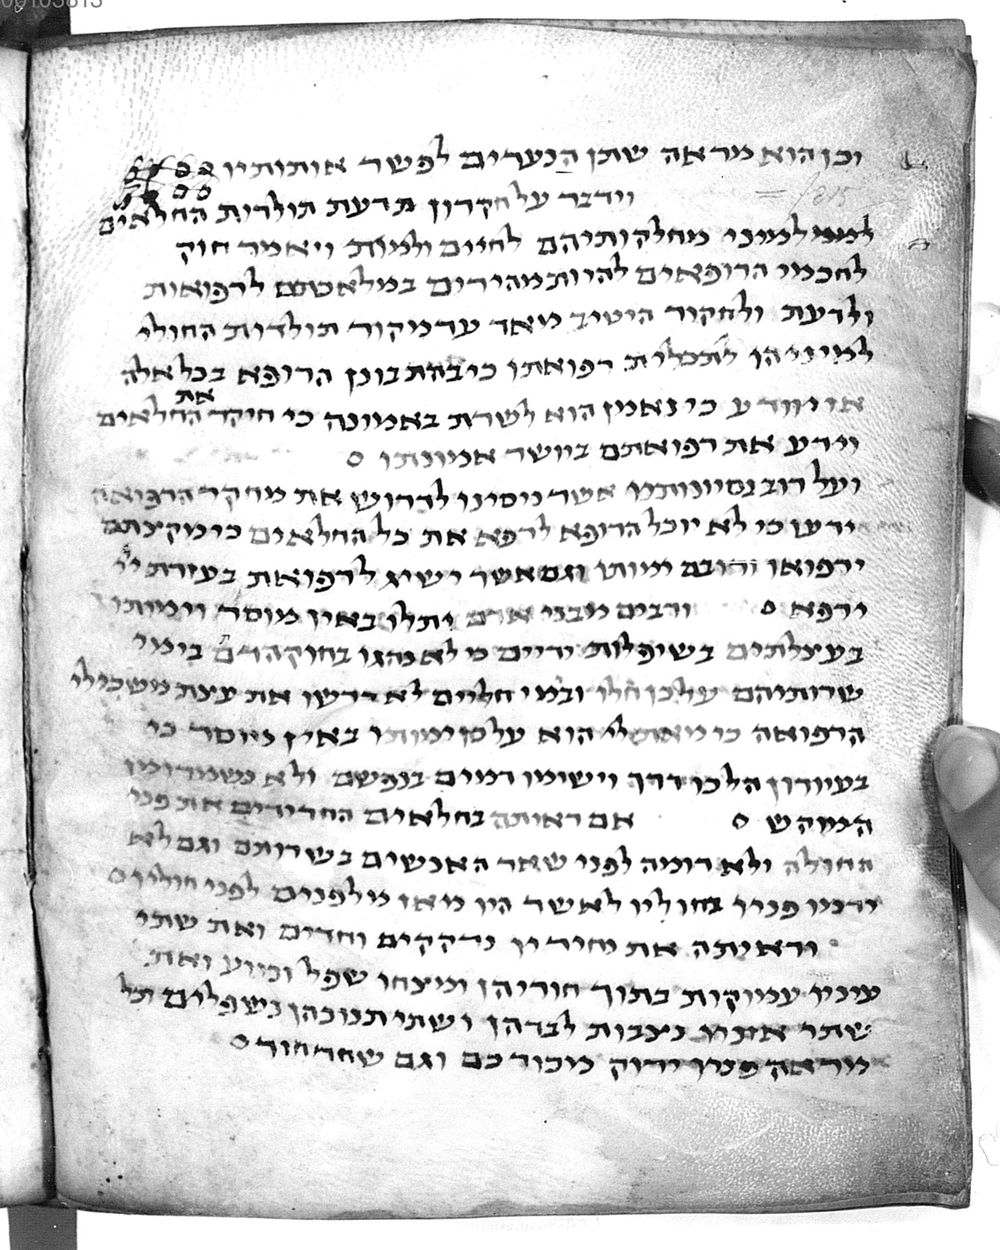 וכן הוא מראה שתן הנערים לפשר אותותיו
וידבר על חקרון תדעת תולדות החלאים
למיני מחלקותיהם לחיים ולמות ויאמר חוק
לחכמי הרופאים להיות מהירים במלאכתם לרפואות
ולדעת ולחקור היטיב מאד עד מקור תולדות החולי
למיניהן לתכלית רפואתו כי בהת בונן הרופא בכל אלה
אז יוודע כי נאמן הוא לשרת באמונה כי חיקר את החלאים
וידע את רפואתם ביושר אמונתו
ועל רוב נסיונותינו אשר ניסינו לדרוש את מחקר הרפואה
ידענו כי לא יוכל הרופא לרפא את כל החלאים כי מקצתם
ירפואו ורובם ימותו וגם אשר ישיג לרפואת בעזרת ייי
ירפא ורבים מבני אדם יחלו באין מוסר וימותו
בעצלתים בשיפלות ידיים כי לא נהגו בחוקה דתם בימי
שרותיהם על כן חלו ובימי חליים לא דרשו את עצת משכילי
הרפואה כי הוא על כן ימותו באין מוסר כי
בעיוורון הלכו דרך וישימו דמים בנפשם ולא נשמרו מן
המוקש אם ראיתה בחלאים החדודים את פני
החולה ולא דומה לפני שאר האנשים בשרותם וגם לא
ידמו פניו בחוליו לאשר היו מאז מלפנים לפני חוליו
וראיתה את נחיריו נדקקים וחדים ואת שתי
עיניו עמוקות בתוך חוריהן ומצחו שפל וכווע ואת
שתי אזניו ניצבות לבדהן ושתי תנוכהן נשפלים וכל
מראה פניו ירוק מכורכם וגם שחרחור